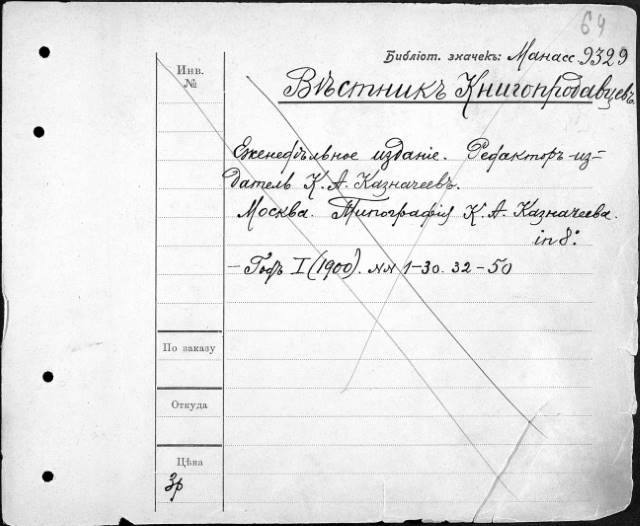 64
Библіот. значекъ: Манасс. 9329
Инв.
№
Вѣстникъ Книгопродавцевъ.
Еженедѣльное изданіе. Редакторъ-из-
датель К. А. Казначеевъ.
Москва. Типографія К. А. Казначеева.
in 8°.
— Годъ I (1900). NN 1-30. 32-50
По заказу
Откуда
Цѣна
3р